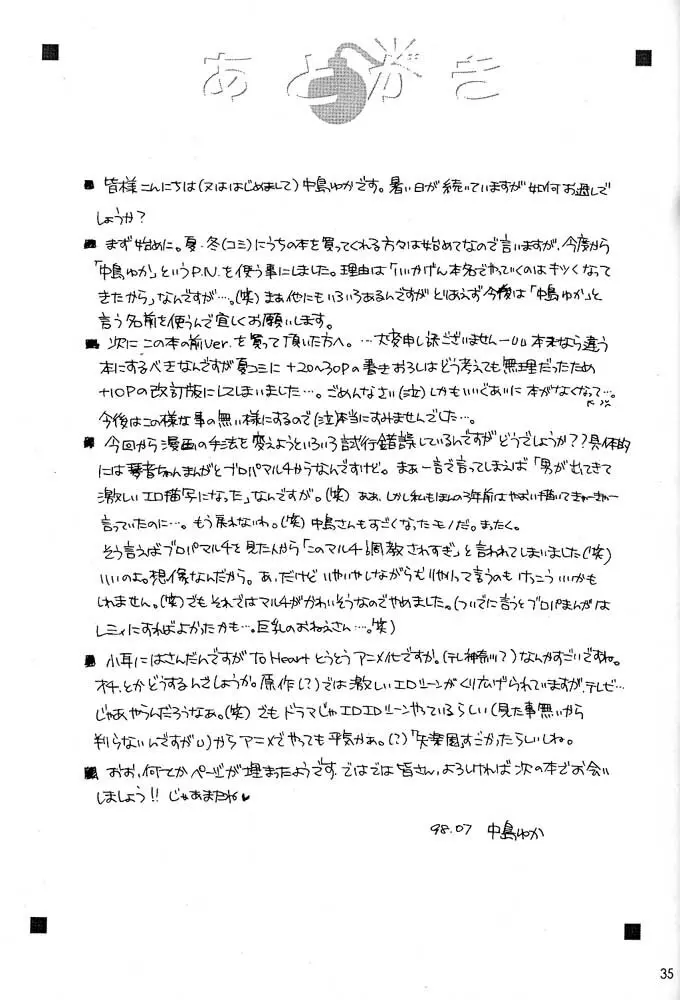 あとがき
■ 皆様こんにちは(又ははじめまして)中島ゆかです。暑い日が続いていますが如何お過しで
しょうか?
■ まず始めに。夏・冬(コミ)にうちの本を買ってくれる方々は始めてなので言いますが、今度から
「中島ゆか」というP.N.を使う事にしました。理由は「いいかげん本名でやっていくのはキツくなって
きたから」なんですが…。(笑)まぁ他にもいろいろあるんですがとりあえず今後は「中島ゆか」と
言う名前を使うんで宜しくお願いします。
■ 次にこの本の前Ver.を買って頂いた方へ。…大変申し訳ございません 本来なら違う
本にするべきなんですが夏コミに+20~30Pの書きおろしはどう考えても無理だったため
+10Pの改訂版にしてしまいました…。ごめんなさい(泣)しかもいいぐあいに本がなくなって…。
今後はこの様な事の無い様にするので(泣)本当にすみませんでした…。
■ 今回から漫画の手法を変えようといろいろ試行錯誤しているんですがどうでしょうか??具体的
には琴音ちゃんまんがとブロパマルチからなんですけど。まぁ一言で言ってしまえば「男が出てきて
激しいエロ描写になった」なんですが。(笑)ああ、しかし私もほんの3年前はやおい描いてきゃーきゃー
言っていたのに…。もう戻れないわ。(笑)中島さんもすごくなったモノだ。まったく。
そう言えばブロパマルチを見た人から「このマルチ調教されすぎ」と言われてしまいました(笑)
いいのよ。想像なんだから。あ、だけどいやいやしながらむりやりって言うのもけっこういいかも
しれません。(笑)でもそれではマルチがかわいそうなのでやめました。(ついでに言うとブロパまんがは
レミィにすればよかったかも…。巨乳のおねえさん…。笑)
■ 小耳にはさんだんですがTo Heartとうとうアニメ化ですか。(テレビ神奈川?)なんかすごいですね。
オチ、とかどうするんでしょうか。原作(?)では激しいエロシーンがくり広げられていますが、テレビ…
じゃあやらんだろうなぁ。(笑)でもドラマじゃエロエロシーンやっているらしい(見た事無いから
判らないんですが)からアニメでやっても平気かぁ。(?)「失楽園」すごかったらしいしね。
■ おお、何とかページが埋まったようです。ではでは皆さん、よろしければ次の本でお会い
しましょう!!じゃあまたね♥
98.07 中島ゆか
35